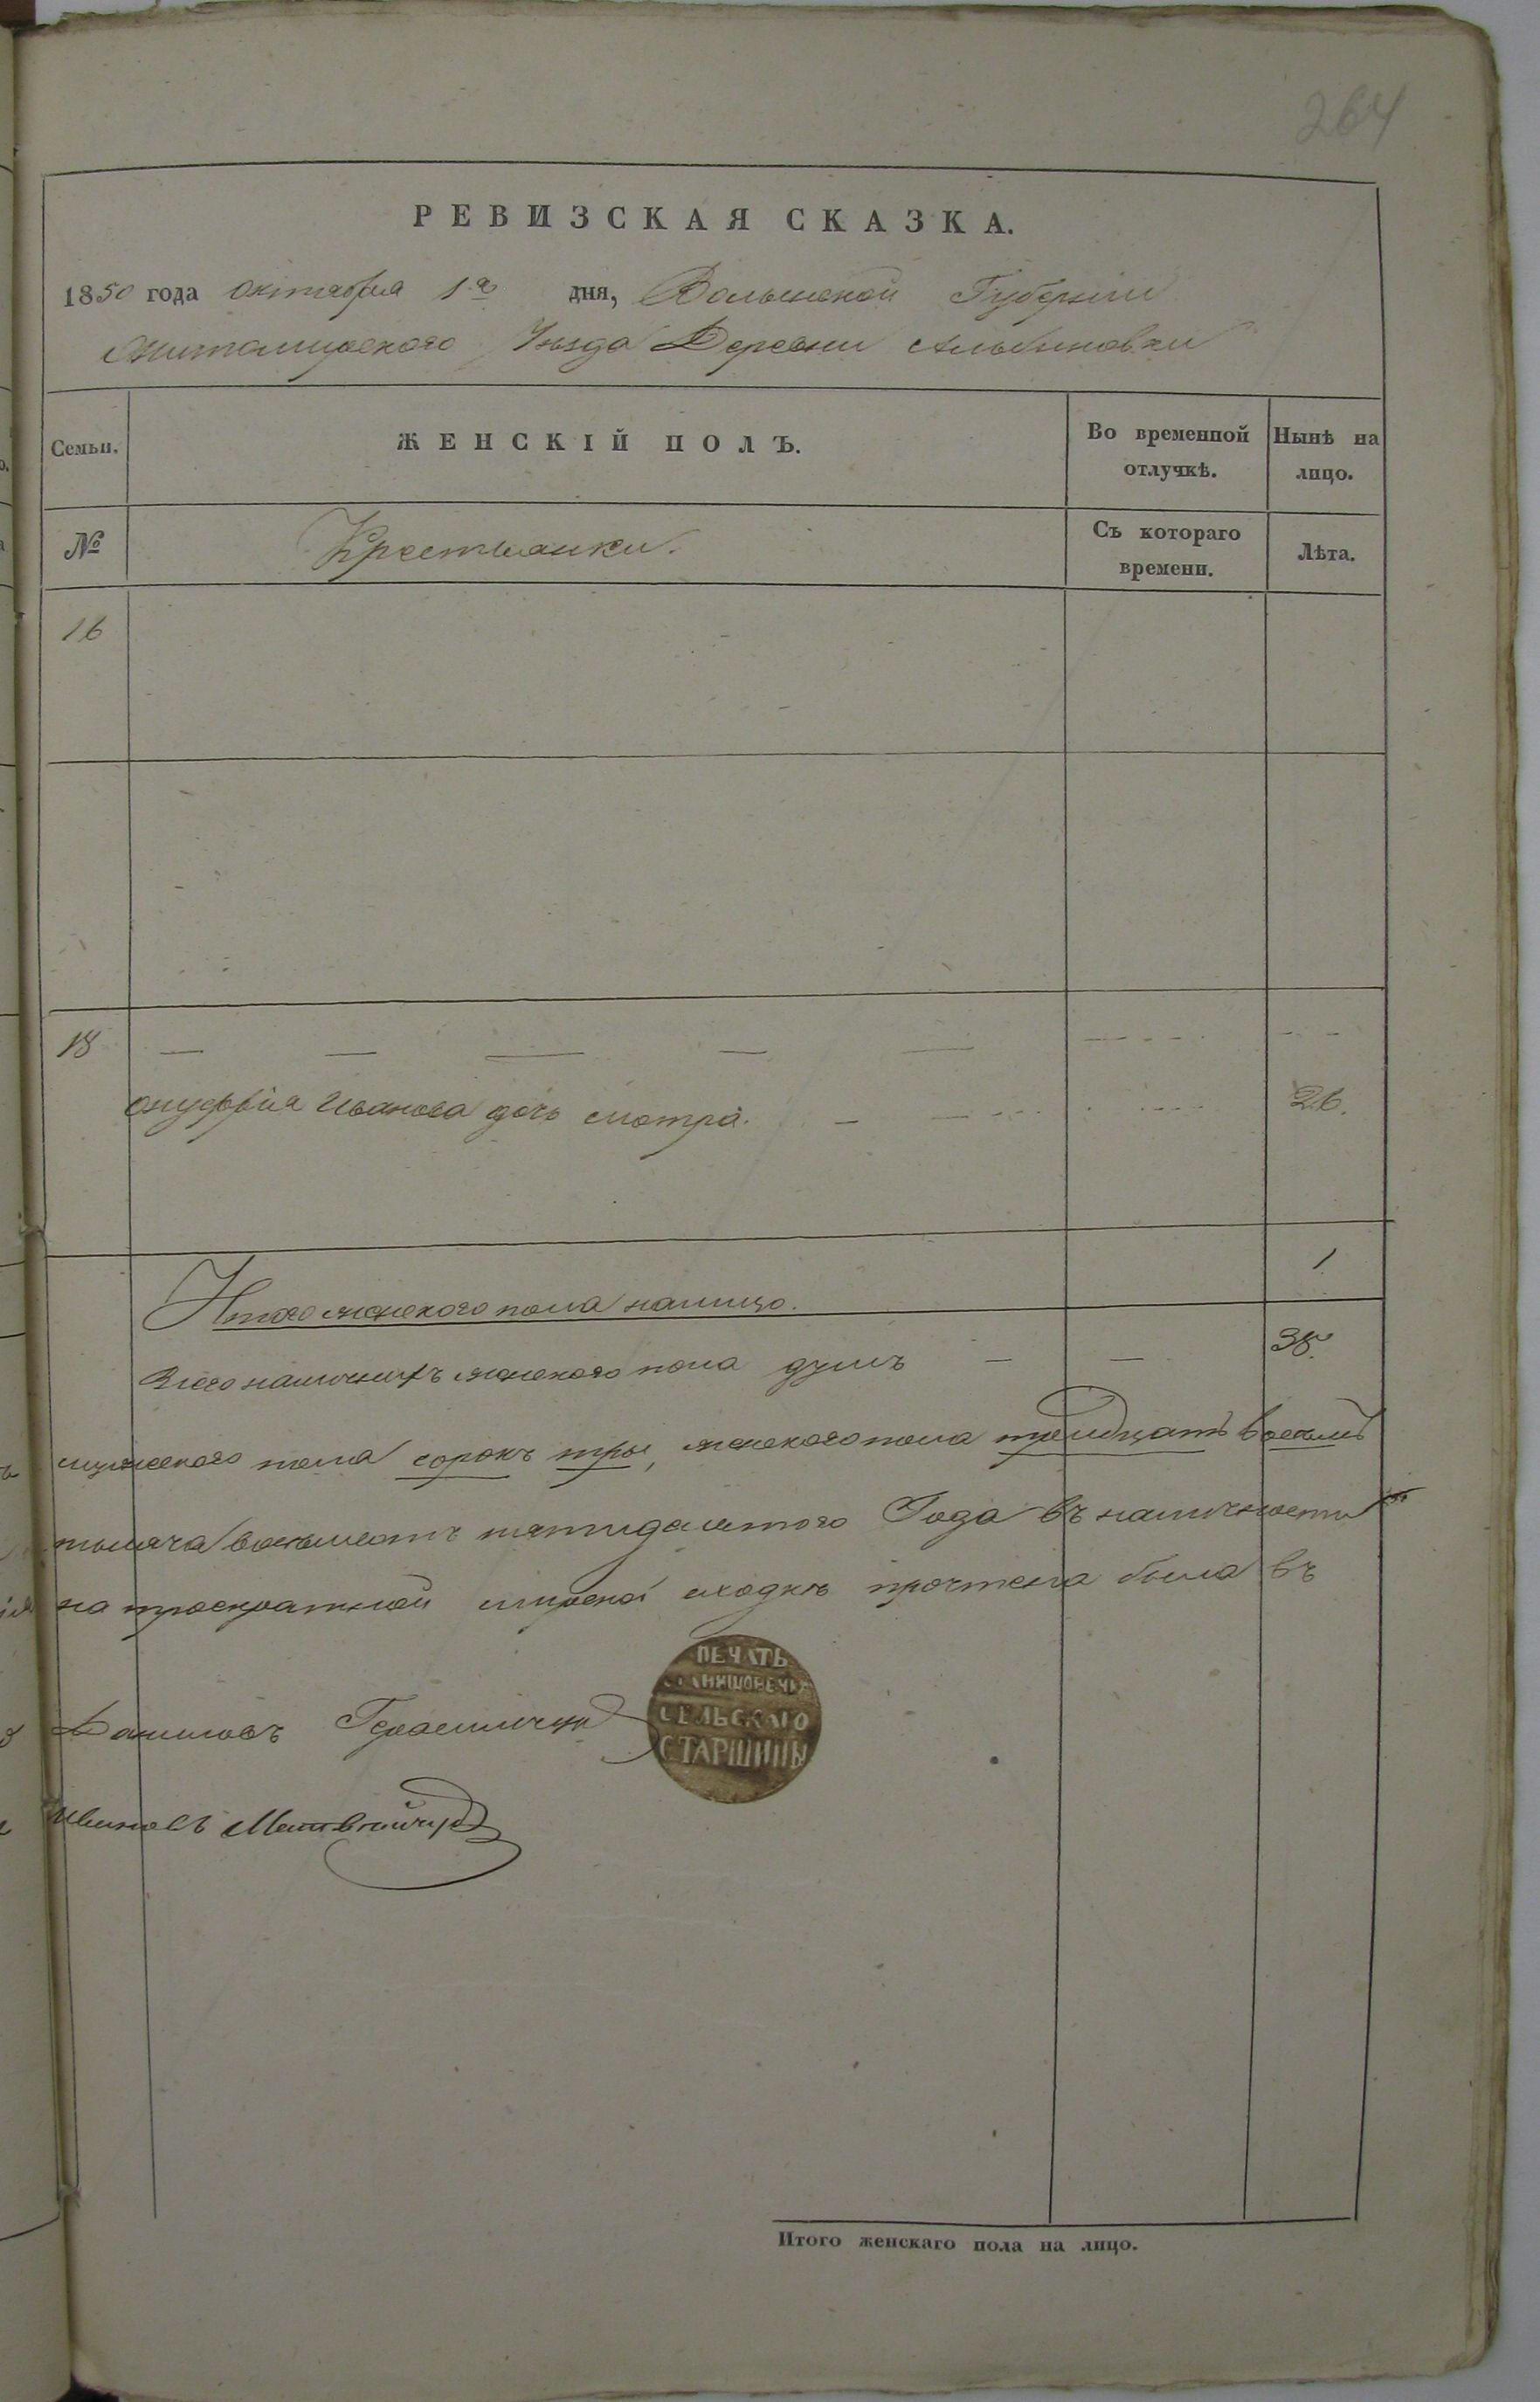 264
РЕВИЗСКАЯ СКАЗКА.
1850 года Октября 1го дня, Волынской Губерніи
Житомирского Уезда Деревни Альбиновки
Семьи. ЖЕНСКІЙ ПОЛЪ. Во временной отлучкѣ. Нынѣ на лицо.
№ Крестьянки. Съ котораго времени. Лѣта.
16
18
Онуфрія Иванова дочь 26.
Итого женского пола налицо. 1
Всего наличныхъ женского пола душъ 38.
мужеского пола сорокъ три, женского пола тридцать восемь
тысяча восемсотъ пятидесятого Года въ наличности
на мирской сходкѣ прочтена была въ
Даниловъ Герасимчукъ
ПЕЧАТЬ
СЕЛЬСКАГО
СТАРШИНЫ
Ивановъ Матвѣйчукъ
Итого женскаго пола на лицо.